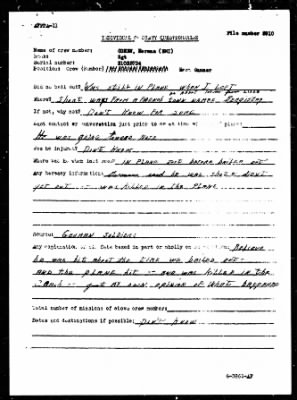 INDIVIDUAL CASUALTY QUESTIONNAIRE
File number 2910
Name of crew member: COHEN, Herman (NMI)
Rank: Sgt
Serial number:
Position: Crew (Bomber) Nose Gunner
Did he bail out? Was still in plane when I left
Where? Short ways from a
If not, why not? Don't know for sure
Last contact or conversation just prior to or at time of loss of plane:
He was going toward nose
Was he injured? Don't know
Where was he when last seen? in plane just before bailed out
Any hearsay information: German said he was there didn't
get out -- was killed in the plane
Source: German soldiers
Any explanation of his fate based in part or wholly on supposition: Believe
he was hit about the time we bailed out -
and the plane hit -- and was killed in the
crash -- just my own opinion of what happened
Total number of missions of above crew member:
Dates and destinations if possible: Don't know
6-3861-AF